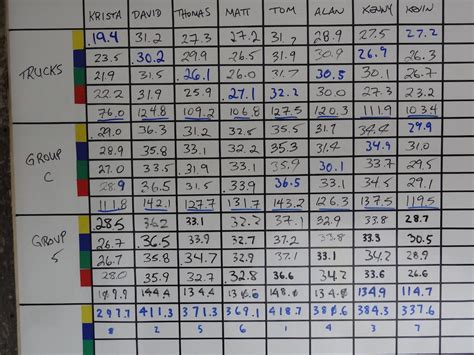 KRISTA DAVID THOMAS MATT TOM ALAN KENNY KEVIN
19.4 31.2 27.3 27.2 31.2 28.9 27.5 27.2
23.5 30.2 29.9 26.5 31.9 30.9 26.9 26.3
TRUCKS 21.9 31.5 26.1 26.0 31.7 30.5 30.1 26.7
22.2 31.9 25.9 27.1 32.2 30.0 27.3 23.2
76.0 124.8 109.2 106.8 127.5 120.3 111.9 103.4
29.0 36.3 31.2 32.5 35.5 31.7 34.4 29.9
GROUP 28.9 35.8 33.1 32.2 35.3 31.4 34.9 31.0
C 27.0 33.5 31.9 33.1 35.9 30.1 33.7 29.5
28.9 36.5 31.5 33.9 36.5 33.1 34.5 29.1
111.8 142.1 127.7 131.7 143.2 126.3 137.5 119.5
28.5 36.2 33.1 32.2 37.1 32.9 33.8 28.7
GROUP 26.7 36.5 33.9 32.7 37.2 33.8 33.3 30.5
5 26.7 35.8 34.7 32.9 37.1 33.1 34.2 28.9
28.0 35.9 32.7 32.8 36.6 34.2 33.6 26.6
109.9 144.4 134.4 130.6 148.0 134.0 134.9 114.7
297.7 411.3 371.3 369.1 418.7 380.6 384.3 337.6
8 2 5 6 1 4 3 7